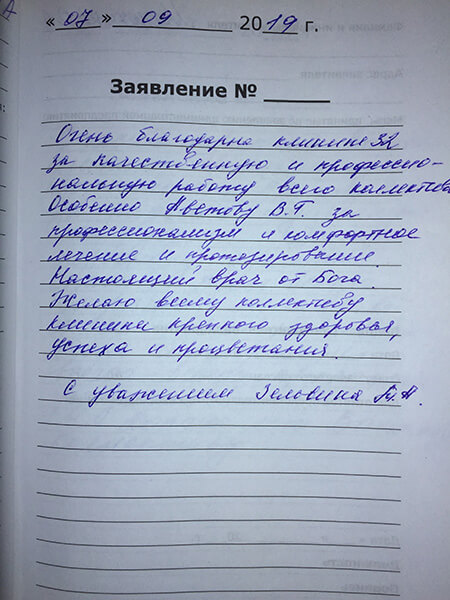 « 07 » 09 2019 г.
Заявление № ______
Очень благодарна клинике 32
за качественную и профессио-
нальную работу всего коллектива
Особенно Аветову В.Г. за
профессионализм и комфортное
лечение и протезирование.
Настоящий врач от Бога.
Желаю всему коллективу
клиники крепкого здоровья,
успеха и процветания.
С уважением Зельвина